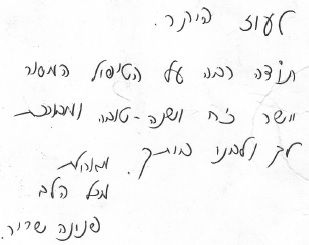 לעוז היקר.
תודה רבה על הטיפול המסור
יישר כח ושנה-טובה ומבורכת
לך ולבני ביתך.
מאחלת
מכל הלב
פנינה שריר.